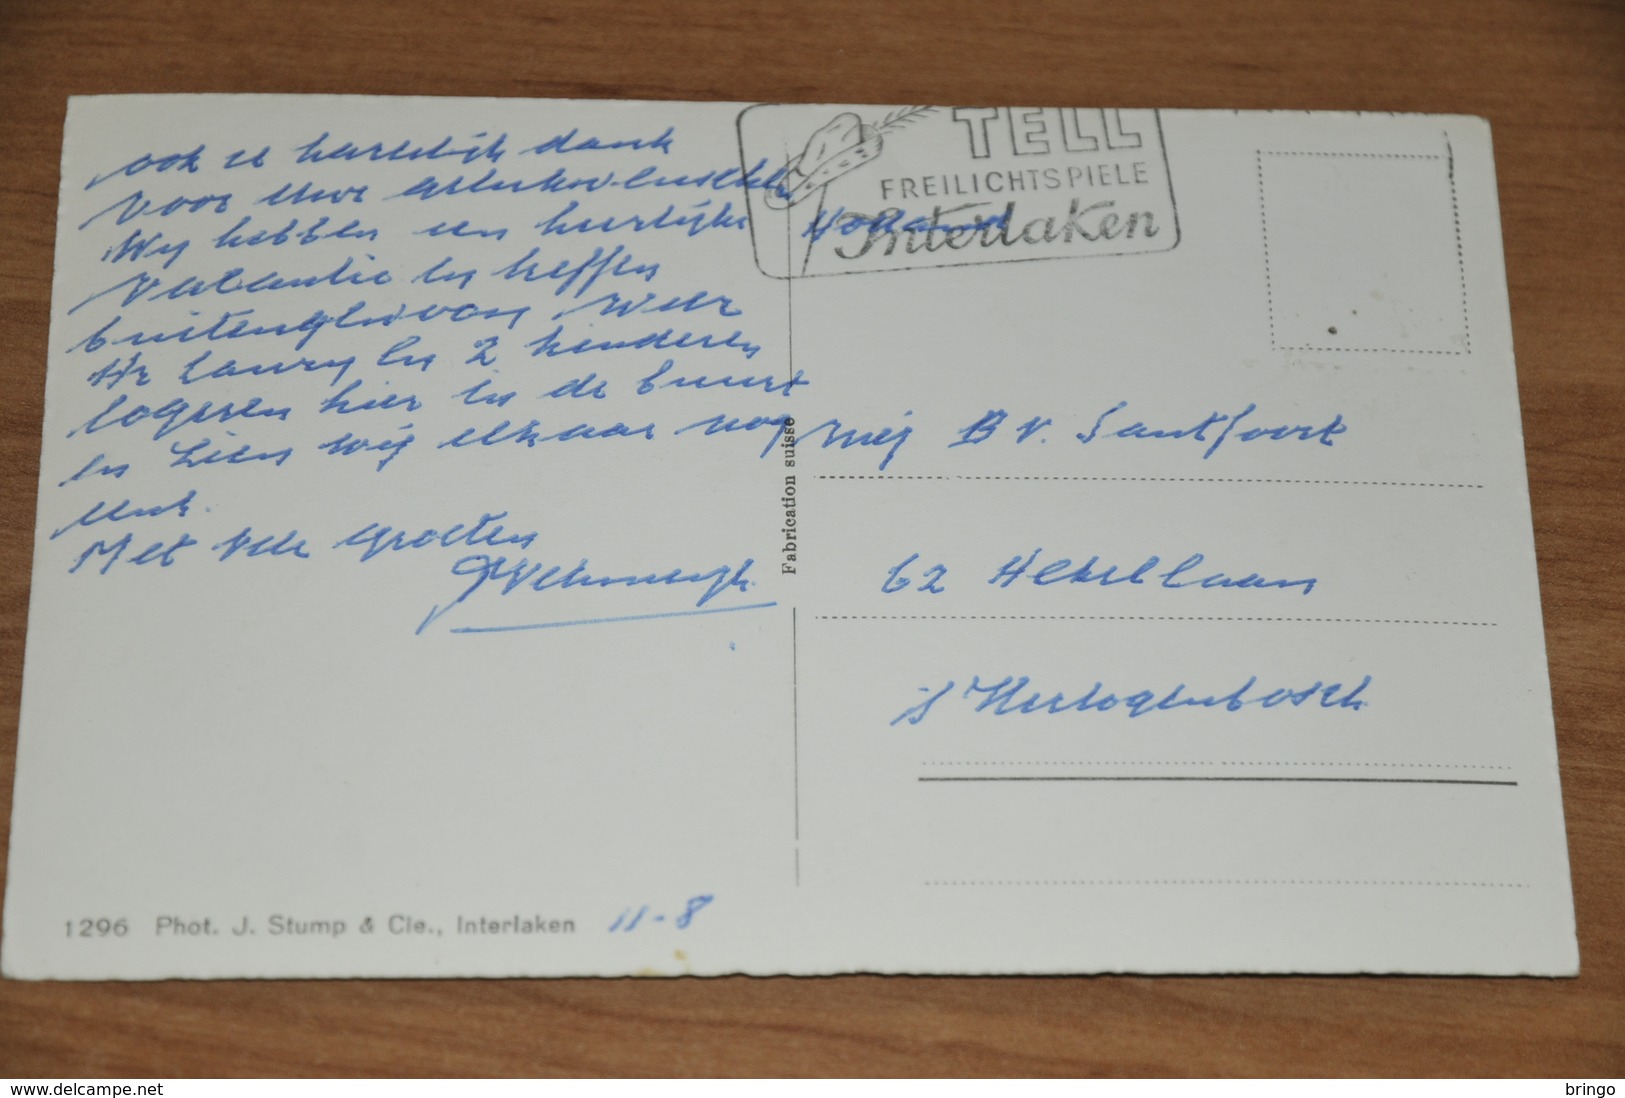 ook U hartelijk dank
voor Uwe gelukwenschen
Wij hebben een heerlijke
vacantie en treffen
buitengewoon weer
Hr Laury en 2 kinderen
logeren hier in de buurt
en zien wij elkaar nog
Met vele groeten
11-8
1296 Phot. J. Stump & Cie., Interlaken
Fabrication suisse
TELL
FREILICHTSPIELE
Interlaken
Holland
Mej B v. Santfoort
62 Hekellaan
's Hertogenbosch
delcampe.net
bringo